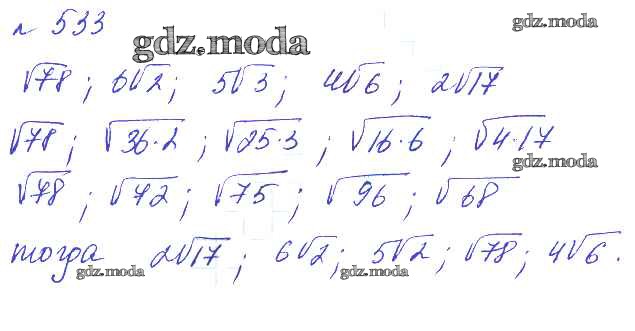 № 533
gdz.moda gdz.moda
√78; 6√2; 5√3; 4√6; 2√17
√78; √36·2; √25·3; √16·6; √4·17
gdz.moda
√78; √72; √75; √96; √68
тогда 2√17; 6√2; 5√2; √78; 4√6.
gdz.moda gdz.moda gdz.moda